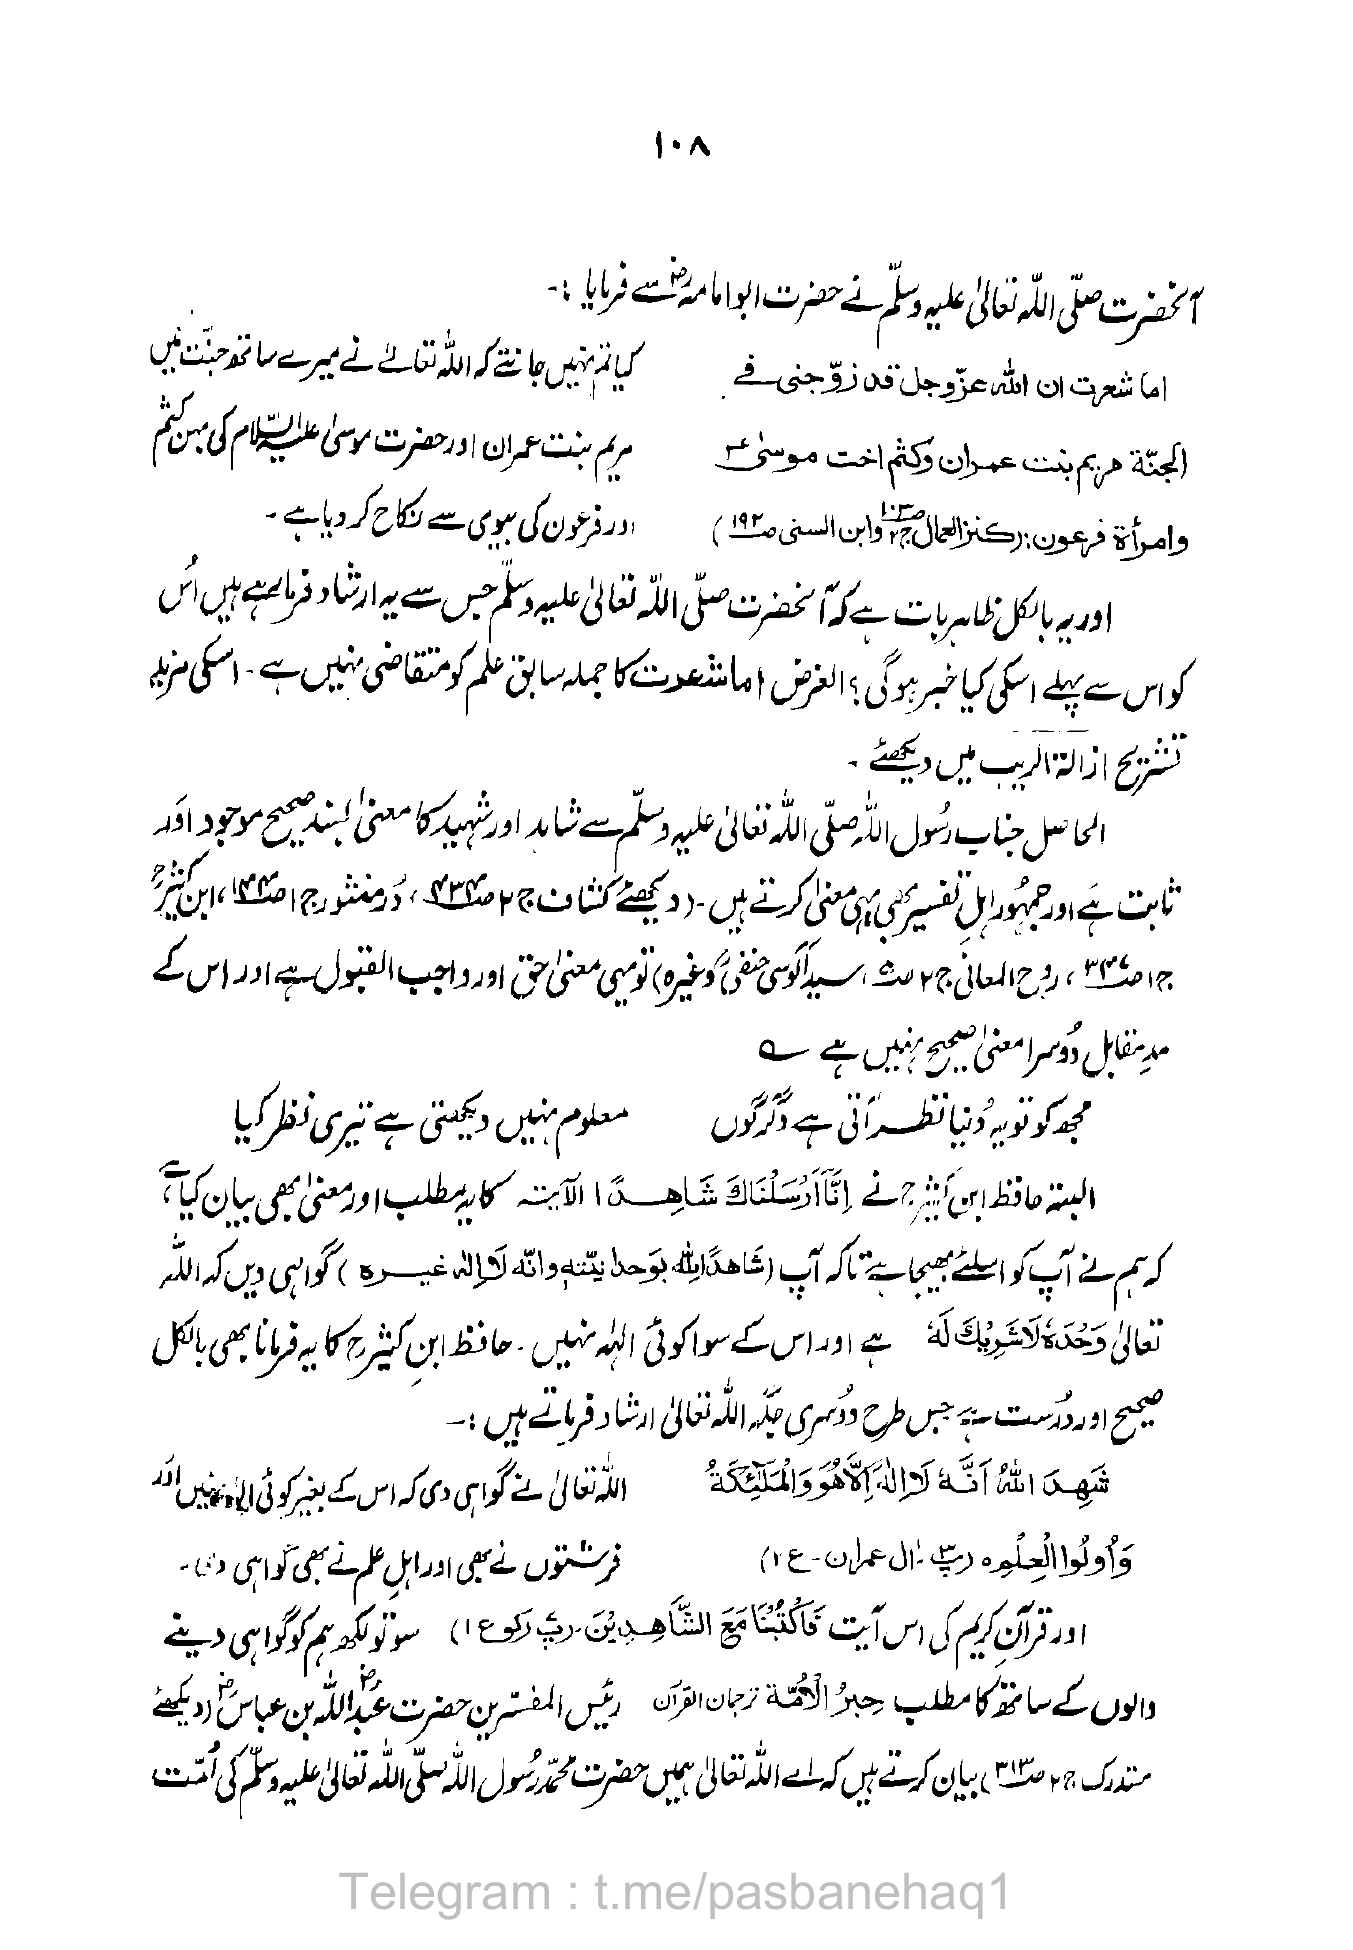 ۱۰۸
آنحضرت صلّی اللہ تعالیٰ علیہ وسلّم نے حضرت ابو امامہؓ سے فرمایا :-
اما شعرت ان اللہ عزّوجل قد زوّجنی فے
کیا تم نہیں جانتے کہ اللہ تعالےٰ نے میرے ساتھ جنّت میں
الجنّة مریم بنت عمران وکثم اخت موسیٰ ؑ
مریم بنت عمران اور حضرت موسیٰ علیہ السّلام کی بہن کثم
وامرأة فرعون: (کنز العمال ج۶ ص۱۰۳ وابن السنی ص۱۹۲)
اور فرعون کی بیوی سے نکاح کر دیا ہے -
اور یہ بالکل ظاہر بات ہے کہ آنحضرت صلّی اللہ تعالیٰ علیہ وسلّم جس سے یہ ارشاد فرما رہے ہیں اُس
کو اس سے پہلے اسکی کیا خبر ہوگی ؟ الغرض اما شعرت کا جملہ سابق علم کو متقاضی نہیں ہے - اسکی مزید
تشریح ازالة الریب میں دیکھئے -
الحاصل جناب رسُول اللہ صلّی اللہ تعالیٰ علیہ وسلّم سے شاہد اور شہید کا معنیٰ بسند صحیح موجود اور
ثابت ہے اور جمہُور اہلِ تفسیر بھی یہی معنیٰ کرتے ہیں - (دیکھئے کشاف ج۲ ص۴۳۴، دُر منثور ج۱ ص۱۴۴، ابن کثیرؒ
ج۱ ص۳۳۷، روح المعانی ج۲ ص۵، سید آلوسی حنفیؒ وغیرہ) تو یہی معنیٰ حق اور واجب القبول ہے اور اس کے
مدِ مقابل دُوسرا معنیٰ صحیح نہیں ہے ؎
مجھ کو تو یہ دُنیا نظر آتی ہے دگرگوں
معلوم نہیں دیکھتی ہے تیری نظر کیا
البتہ حافظ ابن کثیرؒ نے إِنَّآ أَرْسَلْنَاكَ شَاهِدًا الآیتہ کا یہ مطلب اور معنیٰ بھی بیان کیا ہے،
کہ ہم نے آپ کو اسلئے بھیجا ہے تاکہ آپ (شَاهدًا لِلّٰہِ بوَحدانیّتہ وانّہ لَا إِلٰہ غیرہ) گواہی دیں کہ اللہ
تعالیٰ وَحْدَهٗ لَا شَرِيْكَ لَهٗ ہے اور اس کے سوا کوئی الٰہ نہیں - حافظ ابنِ کثیرؒ کا یہ فرمانا بھی بالکل
صحیح اور دُرست ہے جس طرح دُوسری جگہ اللہ تعالیٰ ارشاد فرماتے ہیں :-
شَهِدَ اللّٰهُ اَنَّهٗ لَا إِلٰهَ إِلَّا هُوَ وَالْمَلٰٓئِكَةُ
اللہ تعالیٰ نے گواہی دی کہ اس کے بغیر کوئی الٰہ نہیں اور
وَأُولُوا الْعِلْمِ ه (پ۳ - اٰل عمران - ع۲)
فرشتوں نے بھی اور اہلِ علم نے بھی گواہی دی -
اور قرآنِ کریم کی اس آیت فَاكْتُبْنَا مَعَ الشَّاهِدِيْنَ - (پ۷ رکوع ۱) سو تو لکھ ہم کو گواہی دینے
والوں کے ساتھ کا مطلب حِبرُ الْأُمَّة ترجمان القرآن رئیس المفسّرین حضرت عبد اللہؓ بن عباسؓ (دیکھئے
مستدرک ج۲ ص۳۱۳) بیان کرتے ہیں کہ اے اللہ تعالیٰ ہمیں حضرت محمّد رسُول اللہ صلّی اللہ تعالیٰ علیہ وسلّم کی اُمّت
Telegram : t.me/pasbanehaq1